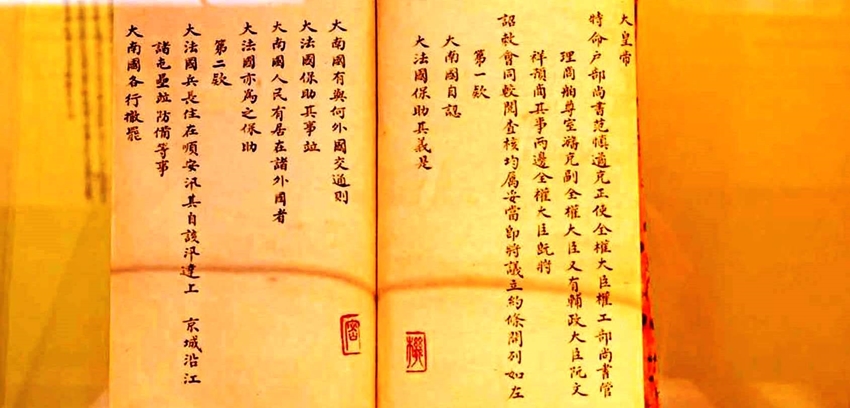 大皇帝
特命户部尚書范慎遹充正使全權大臣權工部尚書管
理商舶尊室潘充副全權大臣又有輔政大臣阮文
祥預商其事兩邊全權大臣既將
詔敕會同較閱查核均屬妥當即將議立約條開列如左
第一款
大南國自認
大法國保助其義是
大南國有與何外國交通則
大法國保助其事竝
大南國人民有居在諸外國者
大法國亦為之保助
第二款
大法國兵長住在順安汛其自該汛達上 京城沿江
諸屯壘竝防備等事
大南國各行撤罷
密